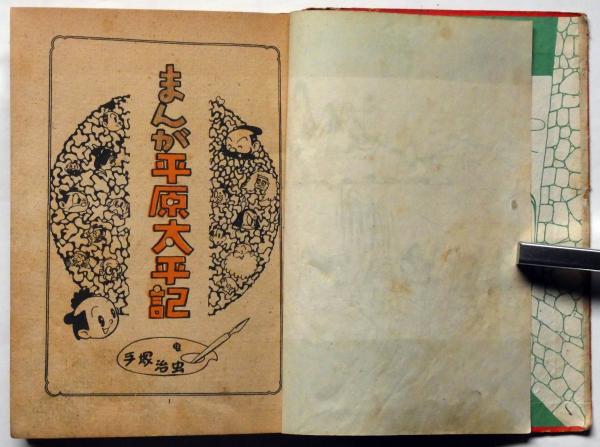 まんが平原太平記
手塚治虫
1